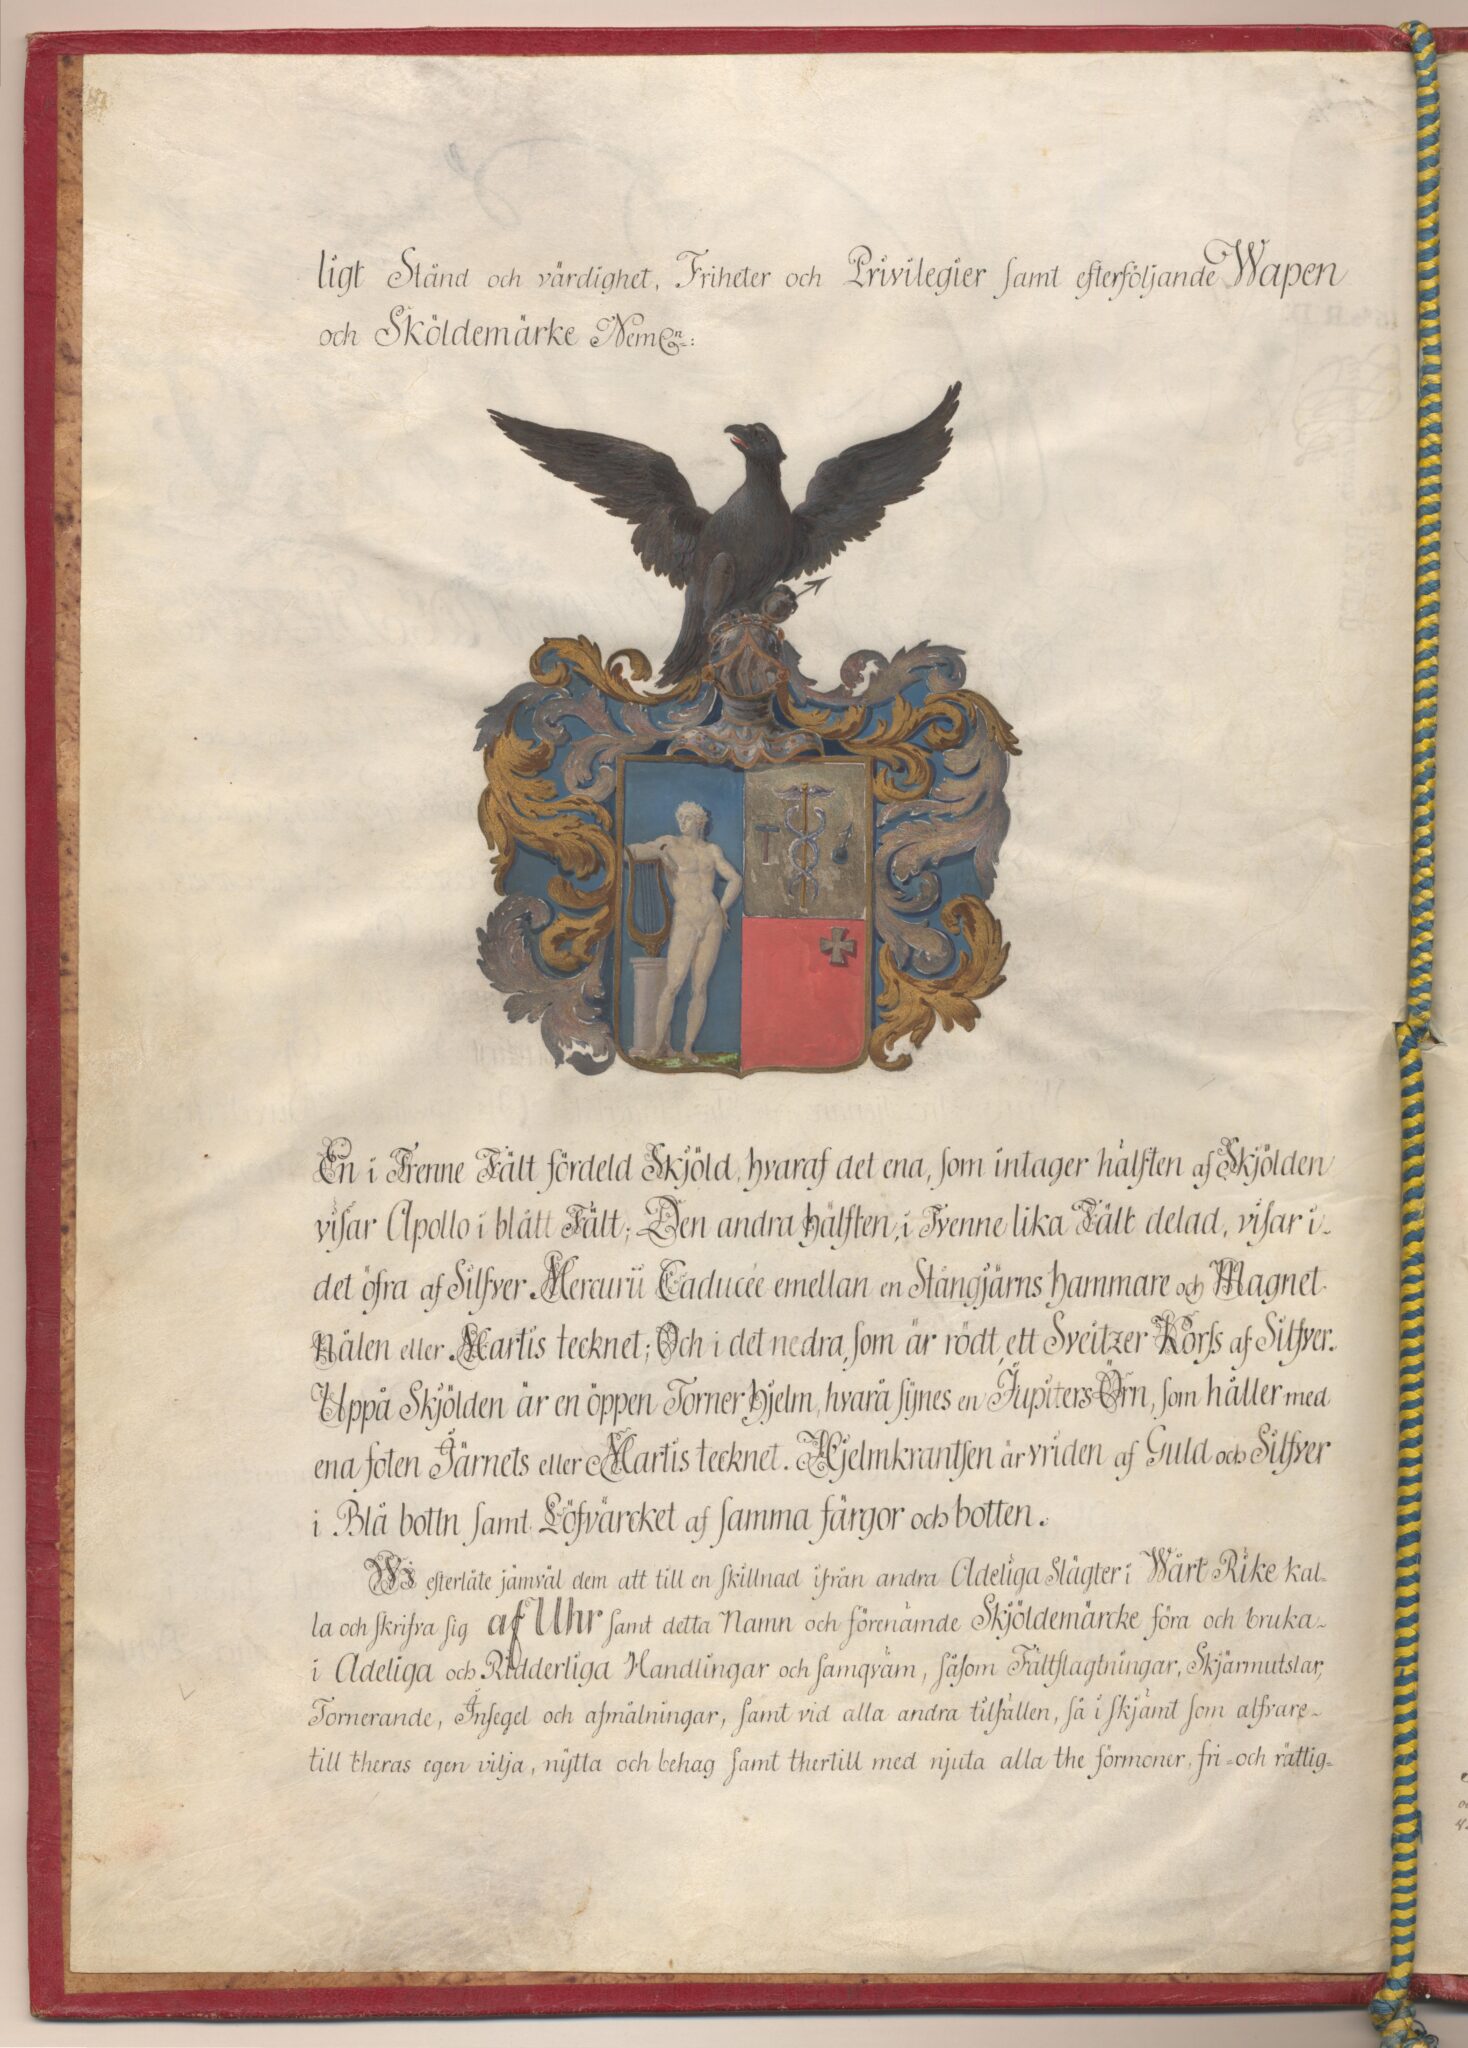 ligt Stånd och värdighet, Friheter och Privilegier samt efterföljande Wapen
och Sköldemärke Neml:n:
En i Trenne Fält fördeld Skjöld, hvaraf det ena, som intager hälften af Skjölden
visar Apollo i blått Fält; Den andra hälften, i Tvenne lika Fält delad, visar i
det öfra af Silfver Mercurii Caducée emellan en Stångjärns hammare och Magnet
Nålen eller Martis tecknet; Och i det nedra, som är rödt, ett Sveitzer Korss af Silfver.
Uppå Skjölden är en öppen Torner hjelm, hvarå synes en Jupiters Örn, som håller med
ena foten Järnets eller Martis tecknet. Hjelmkrantsen är vriden af Guld och Silfver
i Blå bottn samt Löfvärcket af samma färgor och botten.
Wi efterlåte jämväl dem att till en skillnad ifrån andra Adeliga Slägter i Wårt Rike kal-
la och skrifva sig af Uhr samt detta Namn och förenämde Skjöldemärcke föra och bruka
i Adeliga och Ridderliga Handlingar och samqväm, såsom Fältslagtningar, Skjärmutslar,
Tornerande, Insegel och afmålningar, samt vid alla andra tilfällen, så i skjämt som alfvare
till theras egen vilja, nytta och behag samt thertill med njuta alla the förmoner, fri- och rättig-